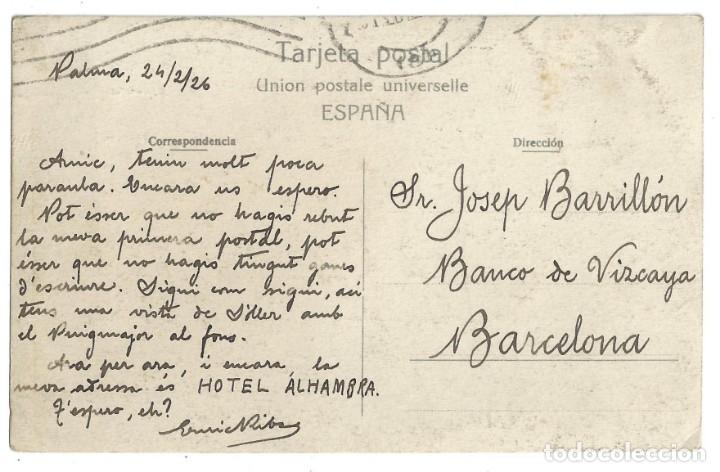 Tarjeta postal
Union postale universelle
ESPAÑA
Correspondencia
Dirección
Palma, 24/2/26
Amic, tenim molt poca
paraula. Encara us espero.
Pot ésser que no hagis rebut
la meva primera postal, pot
ésser que no hagis tingut ganes
d'escriure. Sigui com sigui, ací
tens una vista de Sóller amb
el Puigmajor al fons.
Ara per ara, i encara, la
meva adressa és HOTEL ALHAMBRA.
T'espero, eh?
Enric Ribas
Sr. Josep Barrillón
Banco de Vizcaya
Barcelona
todocoleccion